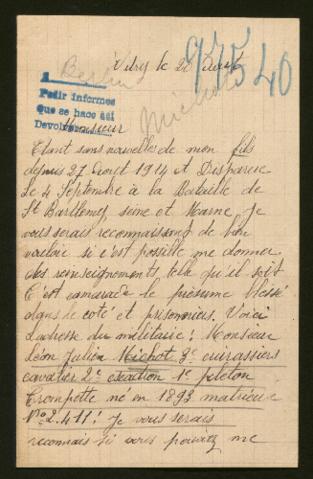 Vitry le 21 Août
97540
Berlin
Michot
Pedir informes
que se hace así
Devolver
Monsieur
Etant sans nouvelle de mon fils
depuis 27 Aout 1914 et Disparue
Le 4 Septembre à la Bataille de
St Barthemy seine et Marne, Je
vous serais reconnaissance de bien
vouloir si c'est possible me donner
des renseignements, tela qu'il soit
C'est camarade le présume blessé
dans le coté et prisonniers. Voici
L'adresse du militaire: Monsieur
Léon Julien Michot 8e cuirassiers
cavalier 2e 1e peleton
Trompette né en 1893 matricue
No 2.411! Je vous serais
reconnais si vous pouviez me